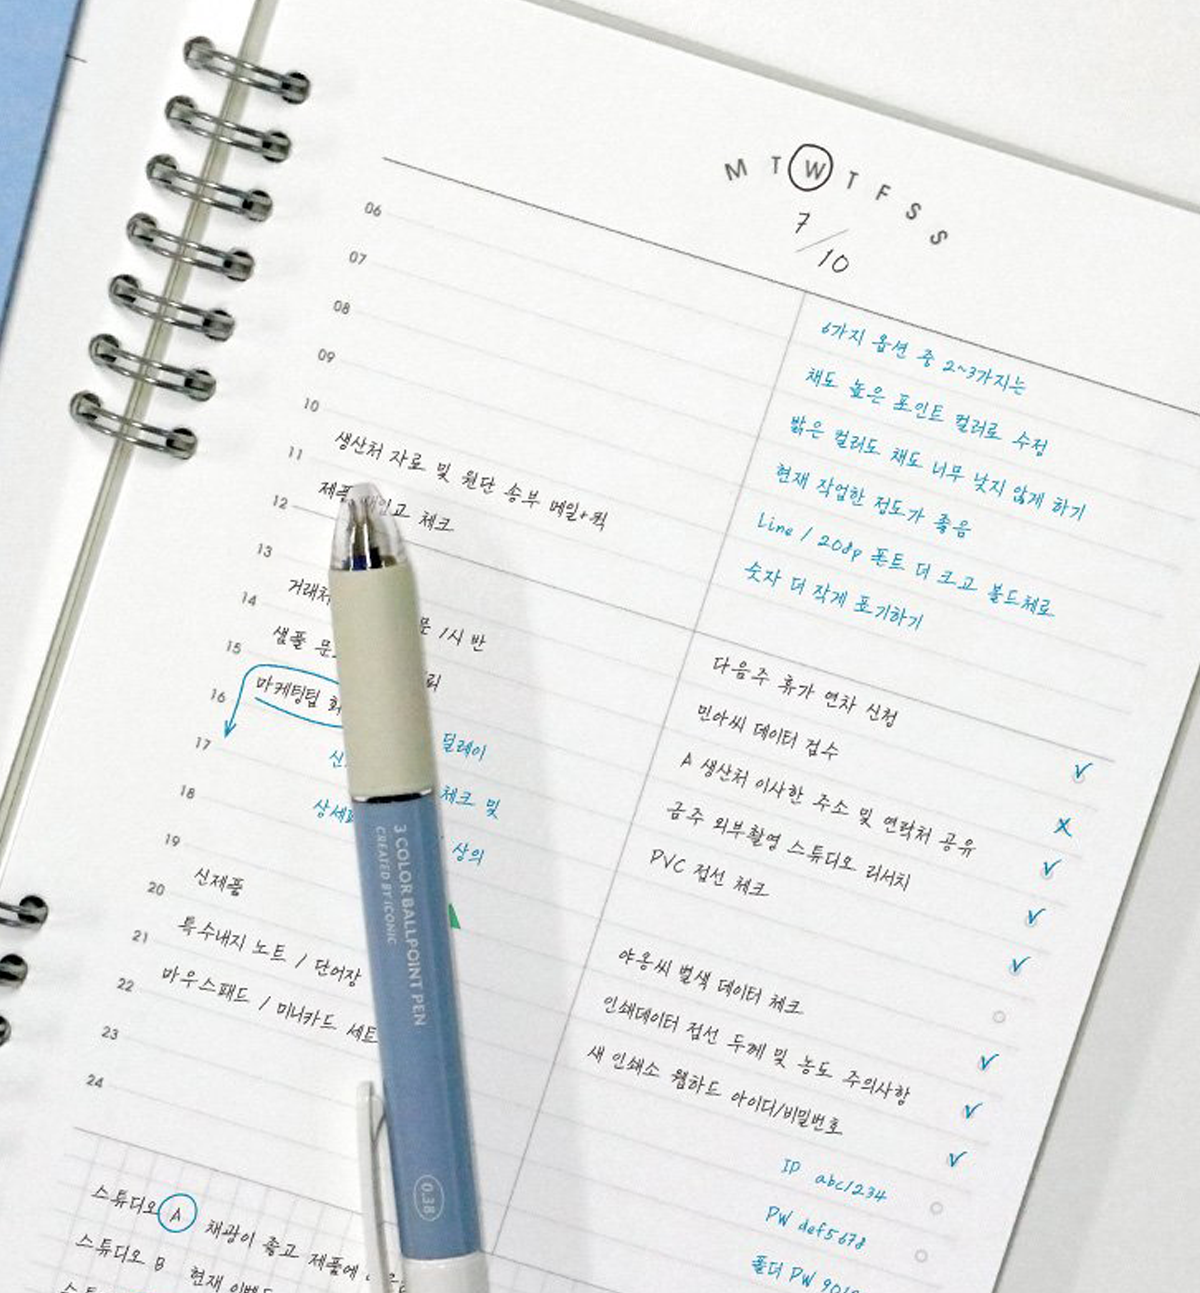 M T W T F S S
7/10
06
07
08
09
10
11
생산처 자료 및 원단 송부 메일+퀵
12
제품 체크
13
14
거래처 /시 반
15
샘플
16
마케팅팀
17
딜레이
18
체크 및
19
상의
20
신제품
21
특수내지 노트 / 단어장
22
마우스패드 / 미니카드 세트
23
24
6가지 옵션 중 2~3가지는
채도 높은 포인트 컬러로 수정
밝은 컬러도 채도 너무 낮지 않게 하기
현재 작업한 정도가 좋음
Line / 208p 폰트 더 크고 볼드체로
숫자 더 작게 표기하기
다음주 휴가 연차 신청
민아씨 데이터 검수
A 생산처 이사한 주소 및 연락처 공유
금주 외부촬영 스튜디오 리서치
PVC 접선 체크
야옹씨 별색 데이터 체크
인쇄데이터 접선 두께 및 농도 주의사항
새 인쇄소 웹하드 아이디/비밀번호
ID abc1234
PW def5678
폴더 PW
스튜디오 A 채광이 좋고 제품에
스튜디오 B 현재
3 COLOR BALLPOINT PEN
CREATED BY ICONIC
0.38